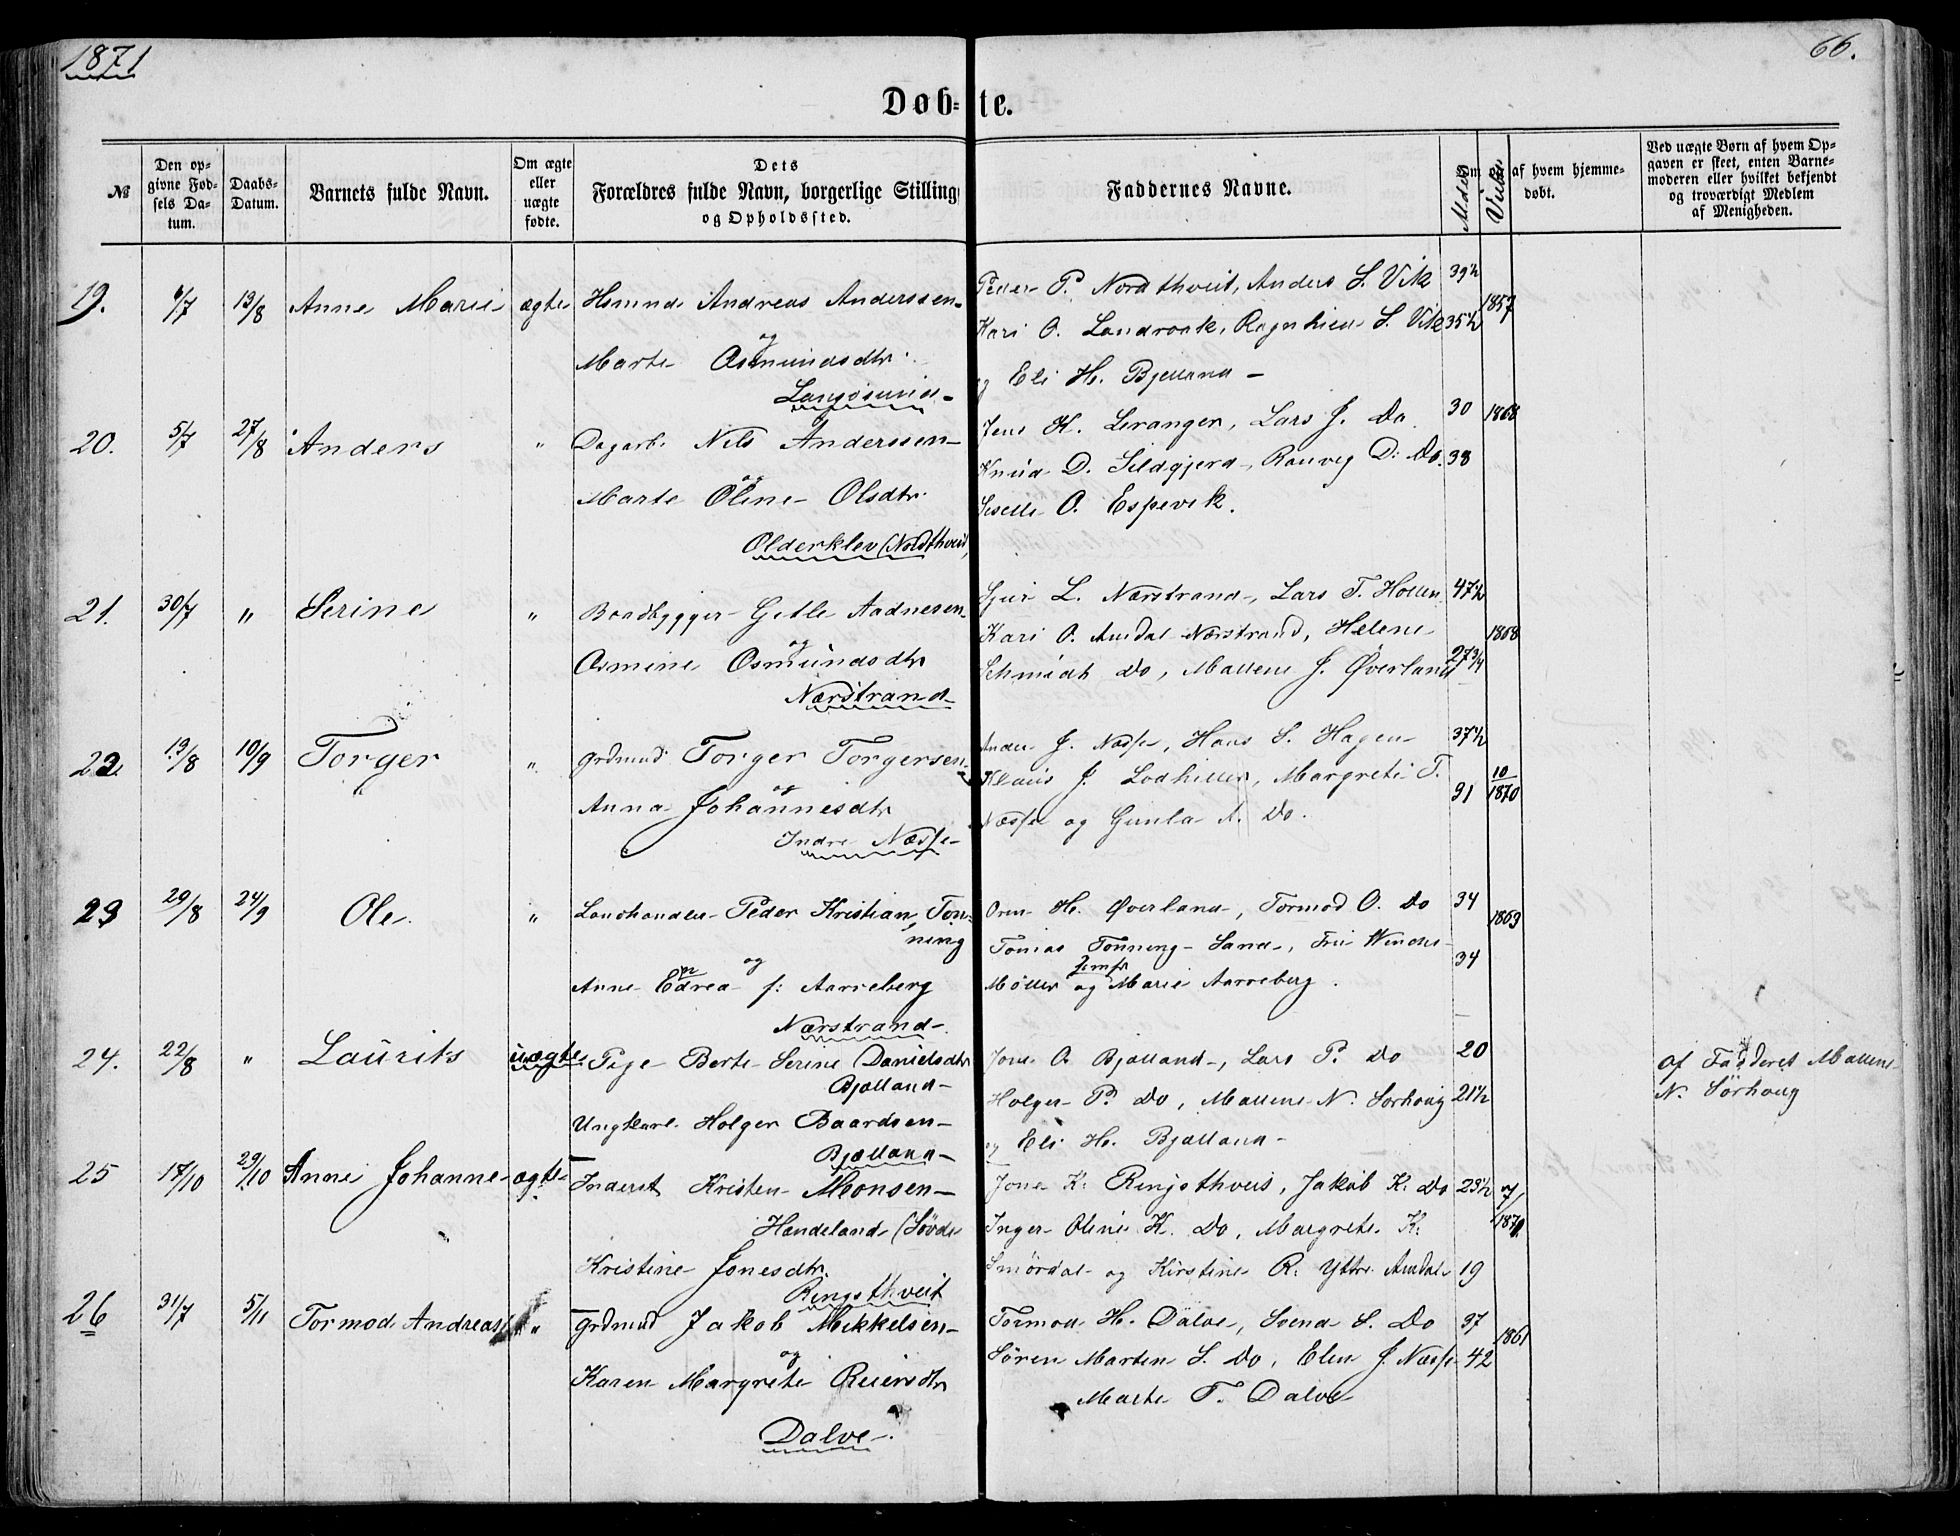 1871
66.
Døb=te.
№
Den op-
givne Fød-
sels Da-
tum.
Daabs-
Datum.
Barnets fulde Navn.
Om ægte
eller
uægte
fødte.
Dets
Forældres fulde Navn, borgerlige Stilling
og Opholdssted.
Faddernes Navne.
Om
af hvem hjemme-
døbt.
Ved uægte Børn af hvem Op-
gaven er skeet, enten Barne-
moderen eller hvilket bekjendt
og troværdigt Medlem
af Menigheden.
19. 6/7 13/8 Anne Marie ægte Hsmnd Andreas Anderssen
og
Marte Osmundsdtr.
Langøsund
Peder P. Nordthveit, Anders S. Vik 39½
Kari O. Landraak, Ragnhild S. Vik 35½ 1857
og Eli H. Bjelland
20. 5/7 27/8 Anders " Dagarb. Nils Anderssen
og
Marte Oline Olsdtr.
Olderklev (Nordthveit)
Jens K. Leranger, Lars J. Do 30 1868
Knud D. Sildgjerd, Ranveg D. Do. 38
Siselle O. Espevik.
21. 30/7 " Serine " Baadbygger Getle Aadnesen
og
Osmine Osmundsdtr
Nærstrand
Sjur L. Nærstrand, Lars T. Hollen 47½
Kari O. Amdal Nærstrand, Helene 1868
Schmidt Do, Mallene J. Øverland 27¾
22. 13/8 10/9 Torger " Grdmnd Torger Torgersen
og
Anna Johannesdtr
Indre Næsse
Anders J. Næsse, Hans S. Hagen 37½
Klaus J. Lodhiller, Margrete T. 10/1870
Næsse og Gunla A. Do. 31
23 29/8 24/9 Ole " Landhandler Peder Kristian Ton-
ning
og
Anne Edrea f: Aarreberg
Nærstrand
Orm H. Øverland, Tormod O. Do 34
1863
Tomas Tonning Sand, Fru
Jomfr
Møller og Marie Aarreberg. 34
24. 22/8 " Laurits uægte Pige Berte Serine Danielsdtr
Bjælland
Ungkarl Holger Baardsen
Bjælland
Jone O. Bjælland, Lars P. Do 20
Holger P. Do, Mallene N. Sørhoug 21½
og Eli H. Bjælland
af Fadderet Mallene
N. Sørhoug
25 17/10 29/10 Anne Johanne ægte Inderst Kristen Monsen
Handeland (Søvde
Kristine Jonesdtr.
Ringsthveit
Jone K. Ringsthveit, Jakob K. Do 23½ 7/1871
Inger Oline K. Do, Margrete K.
Smørdal og Kirstine R. Yttre Amdal 19
26 31/7 5/11 Tormod Andreas " Grdmnd Jakob Mikkelsen
og
Karen Margrete Reiersdtr
Dalve
Tormod H. Dalve, Svend S. Do 37
1861
Søren Marten S. Do, Elen J. Næsse 42
Marte T. Dalve